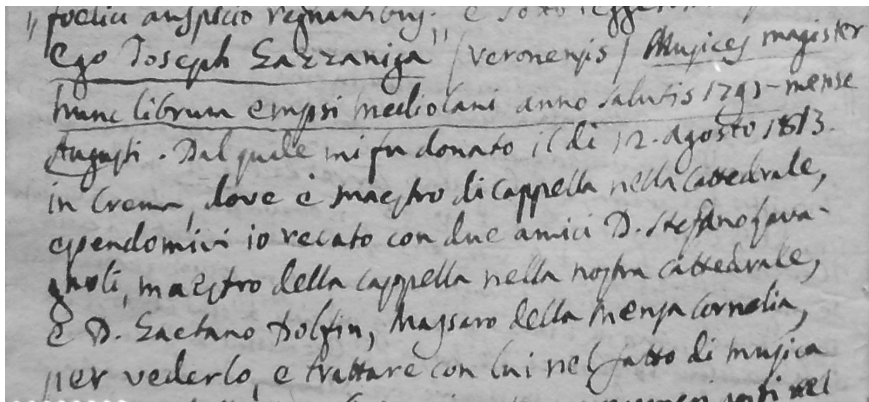 "foelici auspicio regnantibus. e sotto
Ego Joseph Gazzaniga" / Veronensis / Musices magister
hunc librum empsi Mediolani anno salutis 1791 - mense
Augusti. Dal quale mi fu donato il di 12. agosto 1813.
in Crema, dove è maestro di cappella nella cattedrale,
essendomivi io recato con due amici D. Stefano Pava-
gnoli, maestro della cappella nella nostra cattedrale,
e D. Gaetano Dolfin, Massaro della Mensa Cornelia,
per vederlo, e trattare con lui nel fatto di musica